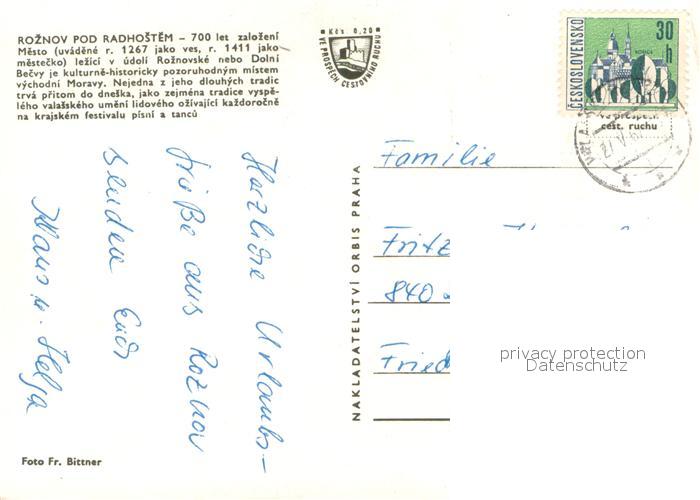 ROŽNOV POD RADHOŠTĚM – 700 let založení
Město (uváděné r. 1267 jako ves, r. 1411 jako
městečko) ležící v údolí Rožnovské nebo Dolní
Bečvy je kulturně-historicky pozoruhodným místem
východní Moravy. Nejedna z jeho dlouhých tradic
trvá přitom do dneška, jako zejména tradice vyspě-
lého valašského umění lidového ožívající každoročně
na krajském festivalu písní a tanců
Kčs 0,20
VE PROSPĚCH CESTOVNÍHO RUCHU
ČESKOSLOVENSKO
30
h
ve prospěch
cest. ruchu
Herzliche Urlaubs-
grüße aus Rožnov
senden Euch
Klaus u. Helga
NAKLADATELSTVÍ ORBIS PRAHA
Familie
Fritz
840
Fried
privacy protection
Datenschutz
Foto Fr. Bittner